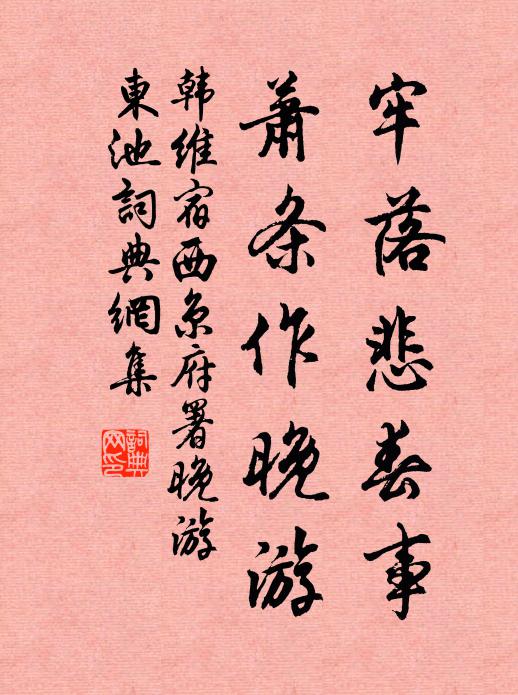 牢落悲春事
蕭条作晚游
韩維宿西京府署晚游
東池詞典網集
詞典
网印